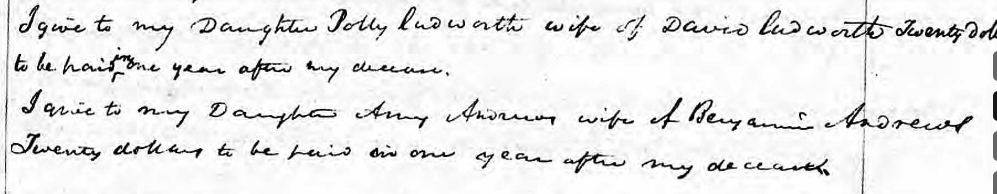 I give to my Daughter Polly Cudworth wife of David Cudworth Twenty Doll
to be paid in one year after my decease.
I give to my Daughter Amy Andrews wife of Benjamin Andrews
Twenty dollars to be paid in one year after my decease